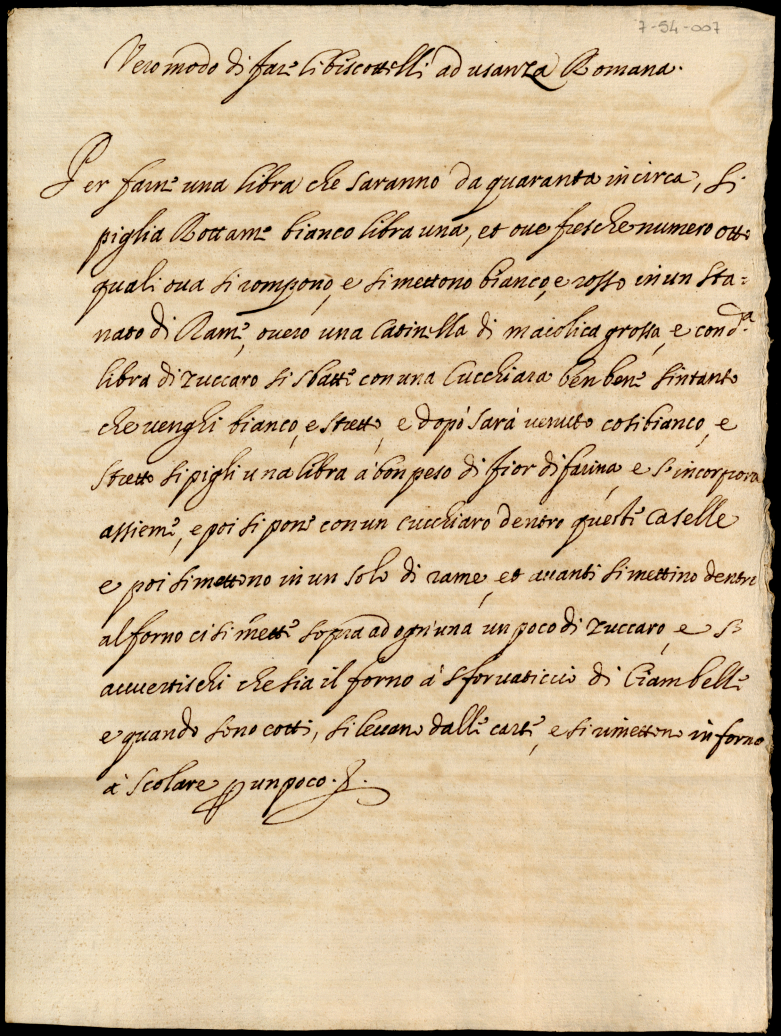 7-54-007
Vero modo di fare li biscottelli ad usanza Romana.
Per farne una libra che saranno da quaranta incirca, si
piglia Rottame bianco libra una, et oue fresche numero otto
quali oua si rompono, e si mettono bianco, e rosso in un sta=
nato di Rame, ouero una Catinella di maiolica grossa, e con d.ta
libra di zuccaro si sbatte con una Cucchiara ben bene sintanto
che uenghi bianco, e stretto, e dopò sarà uenuto cosi bianco, e
stretto si pigli una libra à bon peso di fior di farina, e s'incorpora
assieme, e poi si pone con un cucchiaro dentro queste Caselle
e poi si mettono in un solo di rame, et auanti si mettino dentro
al forno ci si mette sopra ad ogn'una un poco di zuccaro, e si
auuertischi che sia il forno à sfornaticcio di Ciambelle
e quando sono cotti, si leuano dalle carte, e si rimettono in forno
à scolare p un poco.